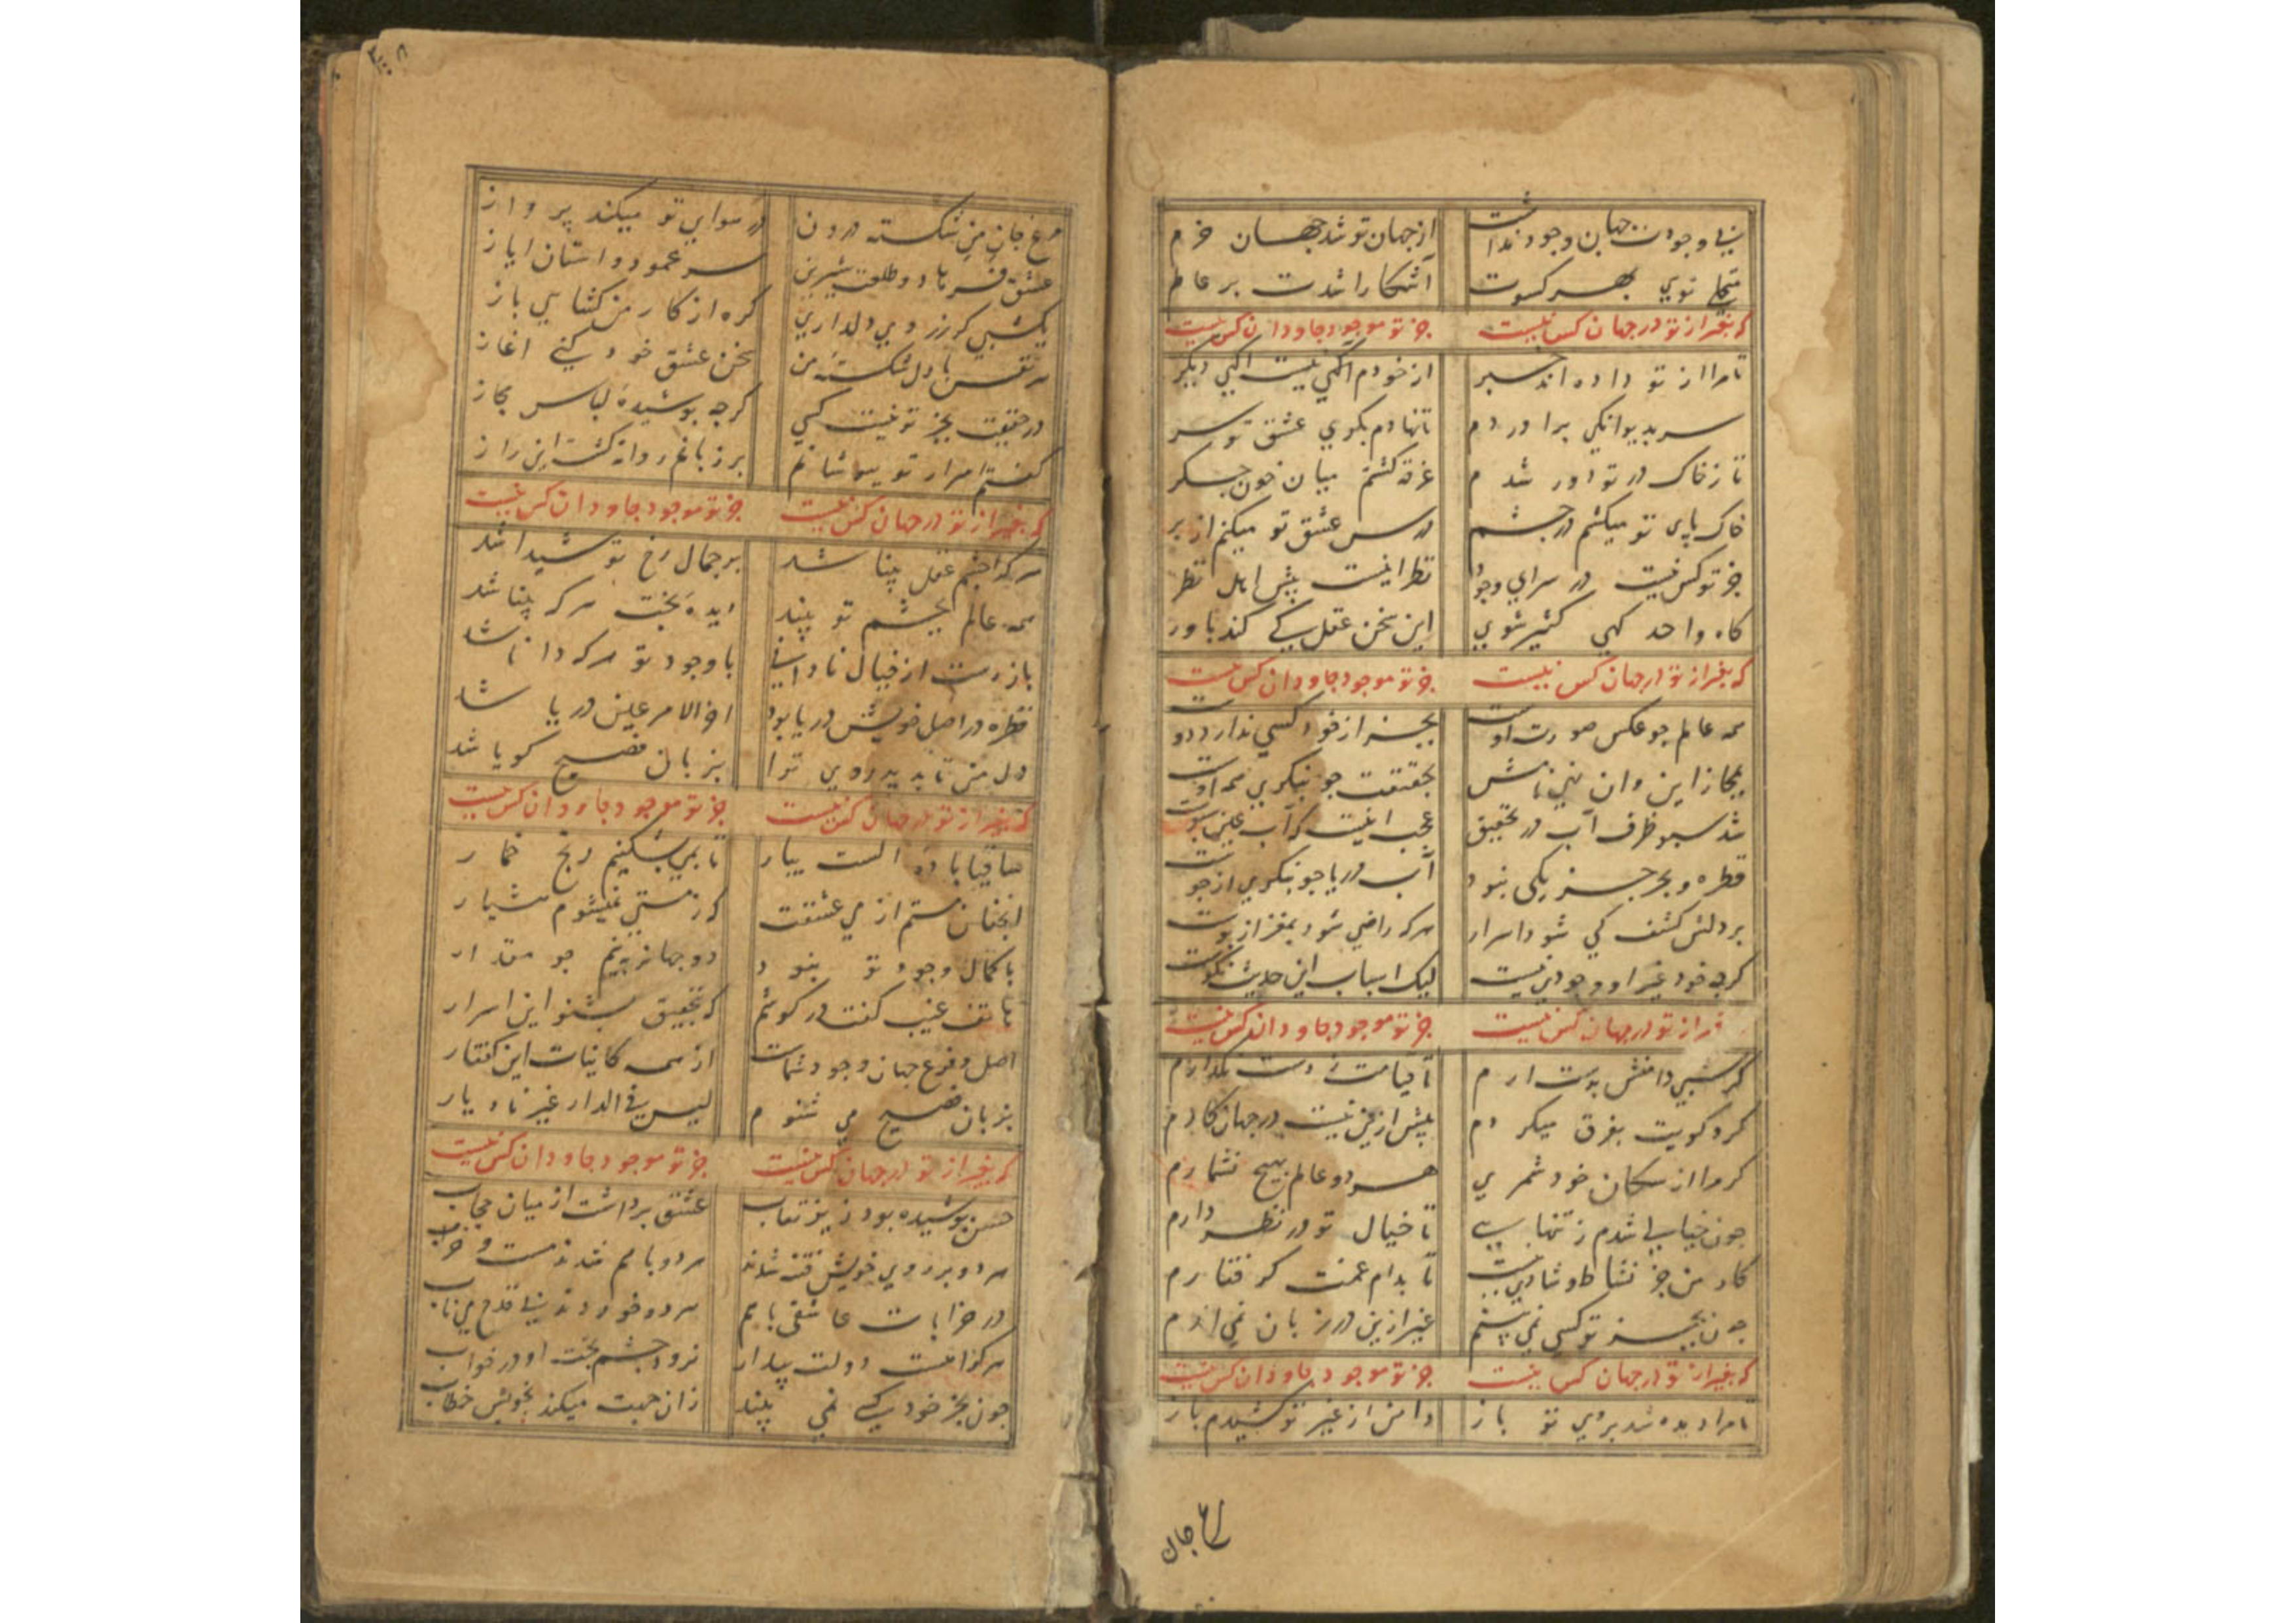 بی وجودت جهان وجود نداشت از جهان تو شد جهان خرم
متجلی توی بهر کسوت آشکارا شدت بر عالم
که بغیر از تو در جهان کس نیست جز تو موجود جاودان کس نیست
تا مرا از تو داده اند خبر از خودم آگهی نیست اکهی دیکر
سر بدیوانکی براوردم تا نهادم بکوی عشق تو سر
تا ز خاک در تو دور شدم غرقه کشتم میان خون جکر
خاک پای تو میکشم در چشم درس عشق تو میکنم از بر
جز تو کس نیست در سرای وجود نظر اینست پیش اهل نظر
کاه واحد کهی کثیر شوی این سخن عقل کی کند باور
که بغیر از تو در جهان کس نیست جز تو موجود جاودان کس نیست
همه عالم جو عکس صورت اوست بجز از خود کسی ندارد دوست
بمجاز این و آن نهی نامش بحقیقت جو بنکری همه اوست
شد سبو ظرف آب در تحقیق عجب اینست که آب عین سبوست
قطره و بحر جز یکی نبود آب دریا جو بنکری از جوست
بر دلش کشف کی شود اسرار هر که راضی شود بمغز از پوست
کرجه خود غیر او وجودی نیست لیک اسباب این حدیث نکوست
از تو در جهان کس نیست جز تو موجود جاودان کس نیست
کر شبی دامنش بدست ارم تا قیامت ز دست نکذارم
کرد کویت بفرق میکردم پیش ازین نیست در جهان کارم
کر مرا از سکان خود شمری هر دو عالم بهیج نشمارم
جون خیالی شدم ز تنهایی تا خیال تو در نظر دارم
کار من جز نشاط و شادی نیست تا بدام غمت کرفتارم
جون بجز تو کسی نمی بینم غیر ازین در زبان نمی ارم
که بغیر از تو در جهان کس نیست جز تو موجود جاودان کس نیست
تا مرا دیده شد بروی تو باز دامن از غیر تو کشیدم باز
مرغ جان
مرغ جان من شکسته درون در هوای تو میکند پرواز
عشق فرهاد و طلعت شیرین سر محمود و استان ایاز
یکشبی کز روی دلداری کره از کار من کشایی باز
هر نفس با دل شکسته من سخن عشق خود کنی اغاز
در حقیقت بجز تو نیست کسی کرجه پوشیده لباس مجاز
کفتم اسرار تو بپوشانم بر زبانم روانه کشت این راز
که بغیر از تو در جهان کس نیست جز تو موجود جاودان کس نیست
هر که را چشم عقل بینا شد بر جمال رخ تو شیدا شد
همه عالم بچشم تو بیند دیده بخت هر که بینا شد
باز رست از خیال نادانی با وجود تو هر که دانا شد
قطره در اصل خویش دریا بود اخر الامر عین دریا شد
دل من تا بدید روی ترا بزبان فصیح کویا شد
که بغیر از تو در جهان کس نیست جز تو موجود جاودان کس نیست
ساقیا باده الست بیار تا بمی بشکنیم رنج خمار
انجنان مستم از می عشقت که ز مستی نمیشوم هشیار
با کمال وجود تو نبود دو جهانرا بنیم جو مقدار
هاتف غیب کفت در کوشم که بتحقیق بشنو این اسرار
اصل و فرع جهان وجود شماست از همه کاینات این کفتار
بزبان فصیح می شنوم لیس فی الدار غیرنا دیار
که بغیر از تو در جهان کس نیست جز تو موجود جاودان کس نیست
حسن پوشیده بود زیر نقاب عشق برداشت از میان حجاب
هر دو بر روی خویش فتنه شدند هر دو با هم شدند مست و خراب
در خرابات عاشقی با هم هر دو خوردند بی قدح می ناب
هر کرا هست دولت بیدار نرود چشم بخت او در خواب
جون بجز خود کسی نمی بیند زان جهت میکند بخویش خطاب